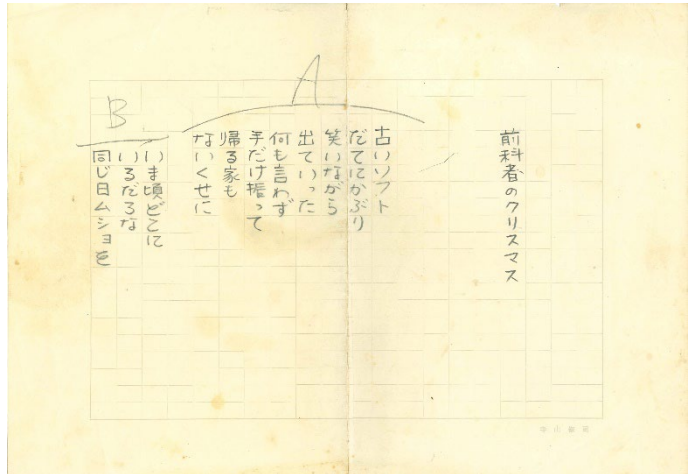 前科者のクリスマス
A
古いソフト
だてにかぶり
笑いながら
出ていった
何も言わず
手だけ振って
帰る家も
ないくせに
B
いま頃どこに
いるだろな
同じ日ムショを